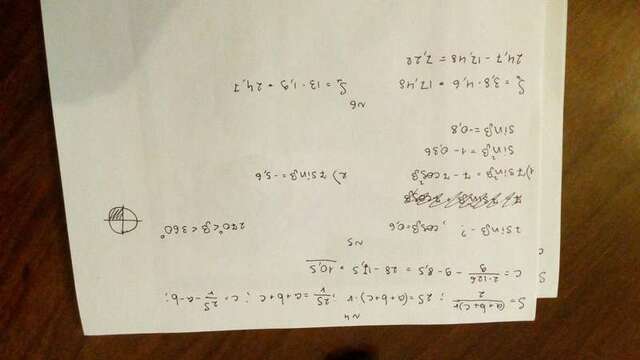 N4
S = (a+b+c)·r / 2 ; 2S = (a+b+c)·r ; 2S/r = a+b+c ; c = 2S/r - a - b ;
c = 2·126/9 - 9 - 8,5 = 28 - 17,5 = 10,5
N5
7 sinβ - ? , cosβ = 0,6 270° < β < 360°
1) 7 sin²β = 7 - 7 cos²β 2) 7 sinβ = -5,6
sin²β = 1 - 0,36
sinβ = -0,8
N6
S₁ = 3,8 · 4,6 = 17,48 S₂ = 13 · 1,9 = 24,7
24,7 - 17,48 = 7,22
S
c